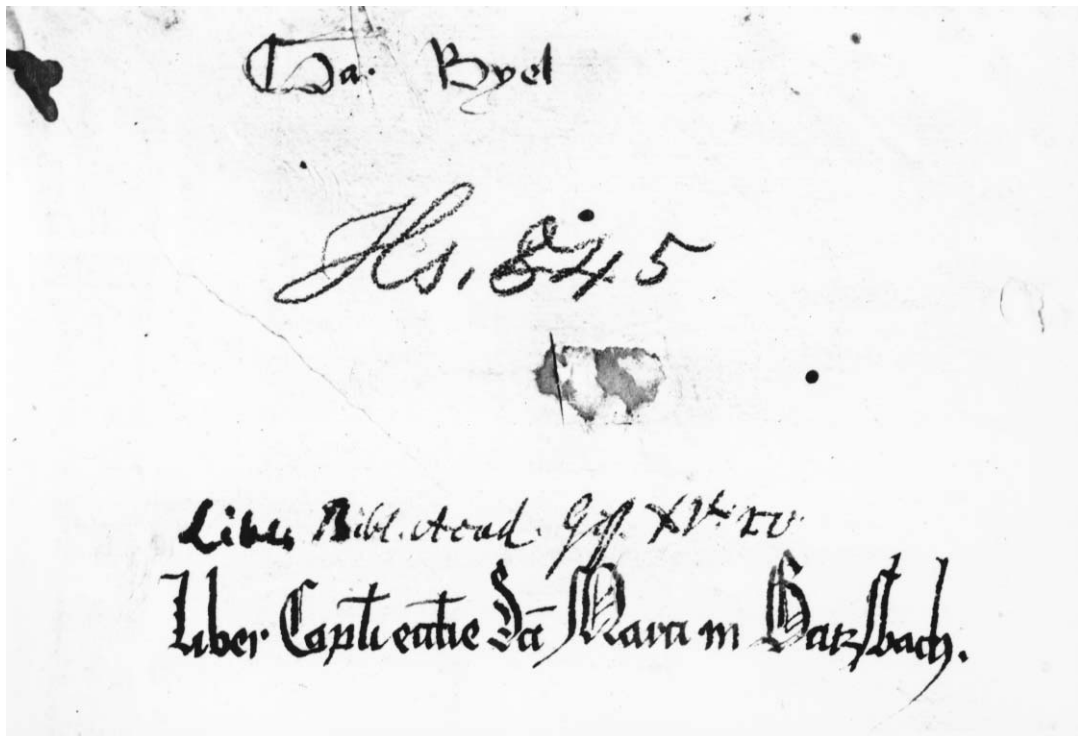 Ga. Byel
Hs. 845
Liber Bibl. Acad. Giss.
Liber Capli eccie Sci Marci in Butzbach.